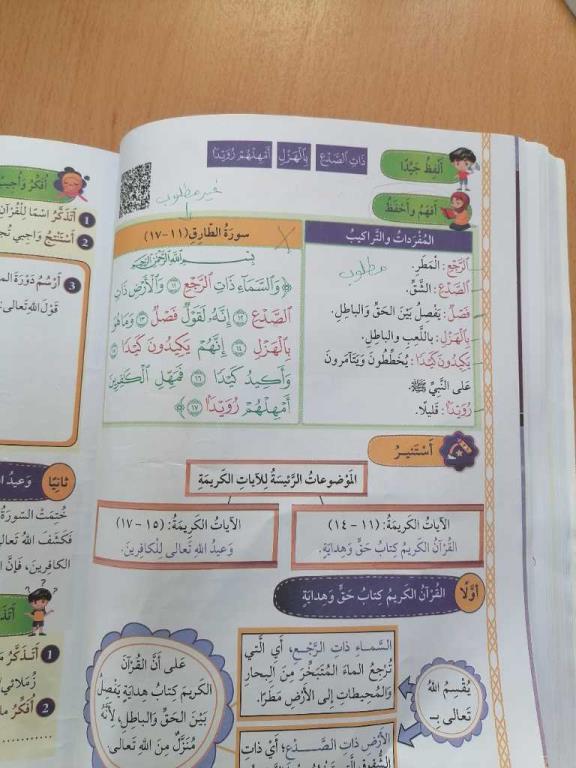 أَلْفِظُ جَيِّدًا
ذَاتِ ٱلصَّدْعِ
بِٱلْهَزْلِ
أَمْهِلْهُمْ رُوَيْدًا
أَفْهَمُ وَأَحْفَظُ
غير مطلوب
المُفْرَداتُ والتَّراكيبُ
مطلوب
الرَّجْعِ: الْمَطَرِ.
الصَّدْعِ: الشَّقِّ.
فَصْلٌ: يَفْصِلُ بَيْنَ الحَقِّ وَالباطِلِ.
بِالْهَزْلِ: بِاللَّعِبِ والباطِلِ.
يَكِيدُونَ كَيْدًا: يُخَطِّطُونَ وَيَتَآمَرونَ
عَلى النَّبِيِّ ﷺ.
رُوَيْدًا: قَليلًا.
سورَةُ الطّارِقِ (١١-١٧)
بِسْمِ اللَّهِ الرَّحْمَنِ الرَّحِيمِ
﴿وَٱلسَّمَآءِ ذَاتِ ٱلرَّجْعِ ١١ وَٱلْأَرْضِ ذَاتِ
ٱلصَّدْعِ ١٢ إِنَّهُۥ لَقَوْلٌ فَصْلٌ ١٣ وَمَا هُوَ
بِٱلْهَزْلِ ١٤ إِنَّهُمْ يَكِيدُونَ كَيْدًا ١٥
وَأَكِيدُ كَيْدًا ١٦ فَمَهِّلِ ٱلْكَٰفِرِينَ
أَمْهِلْهُمْ رُوَيْدًا ١٧﴾
أَسْتَنيرُ
المَوْضوعاتُ الرَّئيسَةُ لِلآياتِ الكَريمَةِ
الآياتُ الكَريمَةُ: (١١ - ١٤)
القُرْآنُ الكَريمُ كِتابُ حَقٍّ وَهِدايَةٍ.
الآياتُ الكَريمَةُ: (١٥ - ١٧)
وَعيدُ اللهِ تَعالى لِلْكافِرينَ.
أَوَّلًا
القُرْآنُ الكَريمُ كِتابُ حَقٍّ وَهِدايَةٍ
يُقْسِمُ اللهُ
تَعالى بِـ
السَّماءِ ذاتِ الرَّجْعِ، أَيِ الَّتي
تُرْجِعُ الماءَ المُتَبَخِّرَ مِنَ البِحارِ
وَالمُحيطاتِ إِلى الأَرْضِ مَطَرًا.
الأَرْضِ ذاتِ الصَّدْعِ؛ أَيْ ذاتِ
عَلى أَنَّ القُرْآنَ
الكَريمَ كِتابُ هِدايَةٍ يَفْصِلُ
بَيْنَ الحَقِّ وَالباطِلِ، لِأَنَّهُ
مُنَزَّلٌ مِنَ اللهِ تَعالى.
أُفَكِّرُ وَأُجيبُ
1 أَتَذَكَّرُ اسْمًا لِلْقُرْآنِ
2 أَسْتَنْتِجُ واجِبي
3 أَرْسُمُ دَوْرَةَ
قَوْلَ اللهِ تَعالى:
ثانِيًا
وَعيدُ
خُتِمَتِ السّورَةُ
فَكَشَفَ اللهُ
الكافِرينَ، فَإِنَّ
1 أَتَذَكَّرُ
2 أُفَكِّرُ